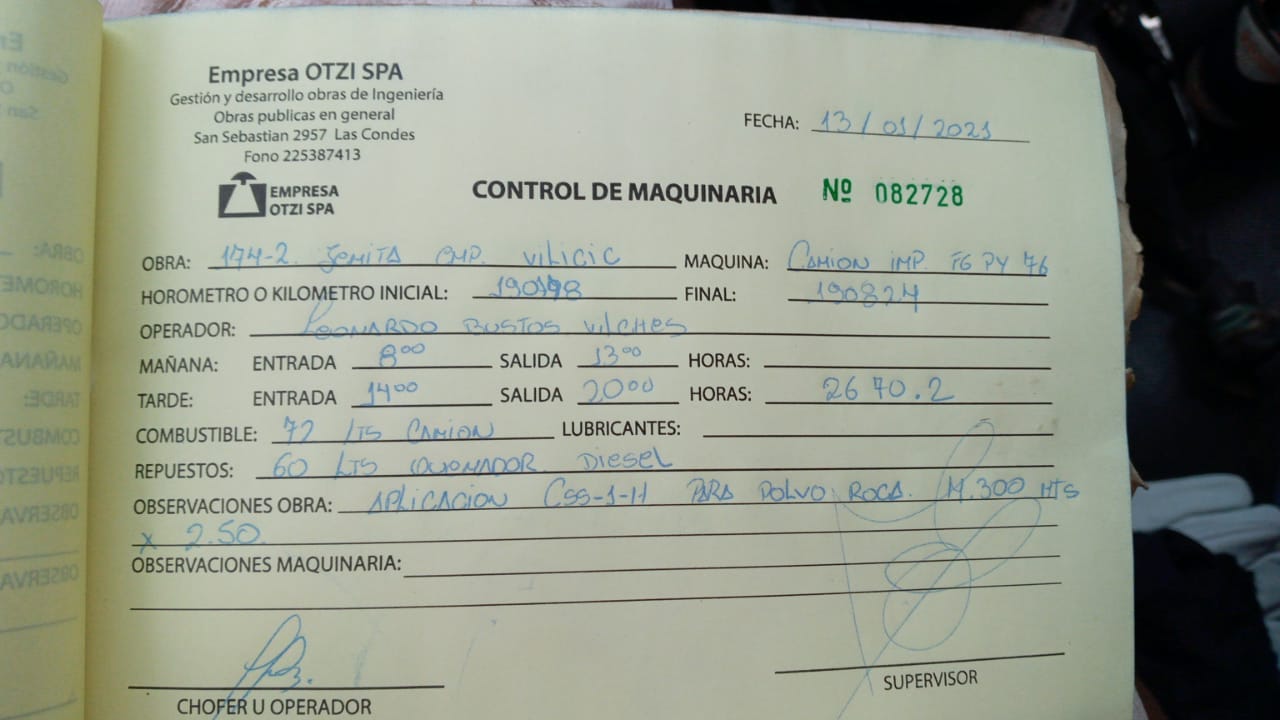 Empresa OTZI SPA
Gestión y desarrollo obras de Ingeniería
Obras publicas en general
San Sebastian 2957 Las Condes
Fono 225387413
EMPRESA
OTZI SPA
FECHA: 13/01/2021
CONTROL DE MAQUINARIA Nº 082728
OBRA: 174-2. VILICIC MAQUINA: CAMION IMP. FG PY 76
HOROMETRO O KILOMETRO INICIAL: FINAL: 190824
OPERADOR: LEONARDO BUSTOS VILCHES
MAÑANA: ENTRADA 8:00 SALIDA 13:00 HORAS:
TARDE: ENTRADA 14:00 SALIDA 20:00 HORAS: 2670.2
COMBUSTIBLE: 72 LTS CAMION LUBRICANTES:
REPUESTOS: 60 LTS QUEMADOR DIESEL
OBSERVACIONES OBRA: APLICACION CSS-1-H PARA POLVO ROCA. M.300 MTS
x 2.50.
OBSERVACIONES MAQUINARIA:
CHOFER U OPERADOR
SUPERVISOR